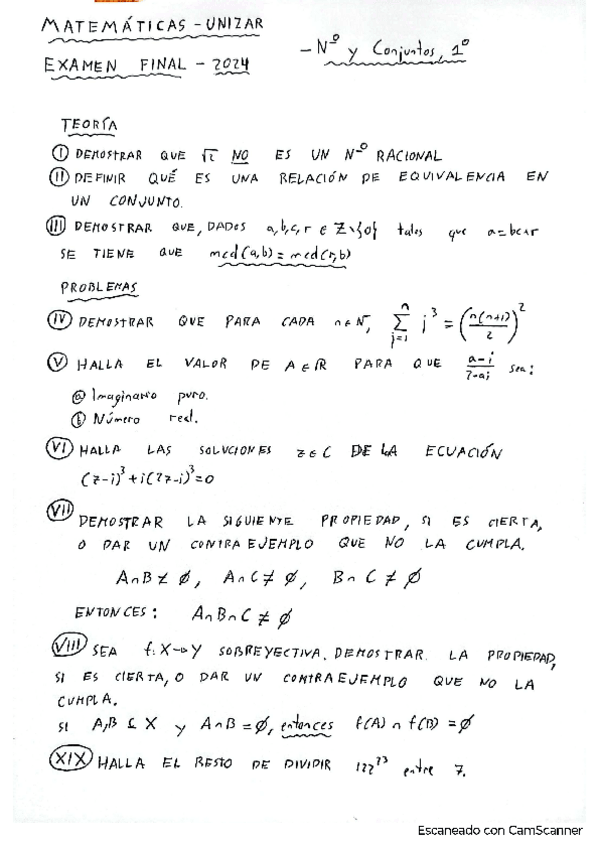 MATEMÁTICAS - UNIZAR
- Nº y Conjuntos, 1º
EXAMEN FINAL - 2024
TEORÍA
I DEMOSTRAR QUE √2 NO ES UN Nº RACIONAL
II DEFINIR QUÉ ES UNA RELACIÓN DE EQUIVALENCIA EN
UN CONJUNTO.
III DEMOSTRAR QUE, DADOS a,b,c,r ∈ Z\{0} tales que a=bc+r
SE TIENE QUE mcd(a,b)=mcd(r,b)
PROBLEMAS
IV DEMOSTRAR QUE PARA CADA n∈N, ∑_{j=1}^{n} j³ = (n(n+1)/2)²
V HALLA EL VALOR DE A∈R PARA QUE (a-i)/(2-ai) sea:
a Imaginario puro.
b Número real.
VI HALLA LAS SOLUCIONES z∈C DE LA ECUACIÓN
(z-i)³+i(2z-i)³=0
VII DEMOSTRAR LA SIGUIENTE PROPIEDAD, SI ES CIERTA,
O DAR UN CONTRAEJEMPLO QUE NO LA CUMPLA.
A∩B≠∅, A∩C≠∅, B∩C≠∅
ENTONCES: A∩B∩C≠∅
VIII SEA f: X→Y SOBREYECTIVA. DEMOSTRAR LA PROPIEDAD,
SI ES CIERTA, O DAR UN CONTRAEJEMPLO QUE NO LA
CUMPLA.
SI A,B ⊆ X y A∩B=∅, entonces f(A)∩f(B)=∅
XIX HALLA EL RESTO DE DIVIDIR entre 7.
Escaneado con CamScanner